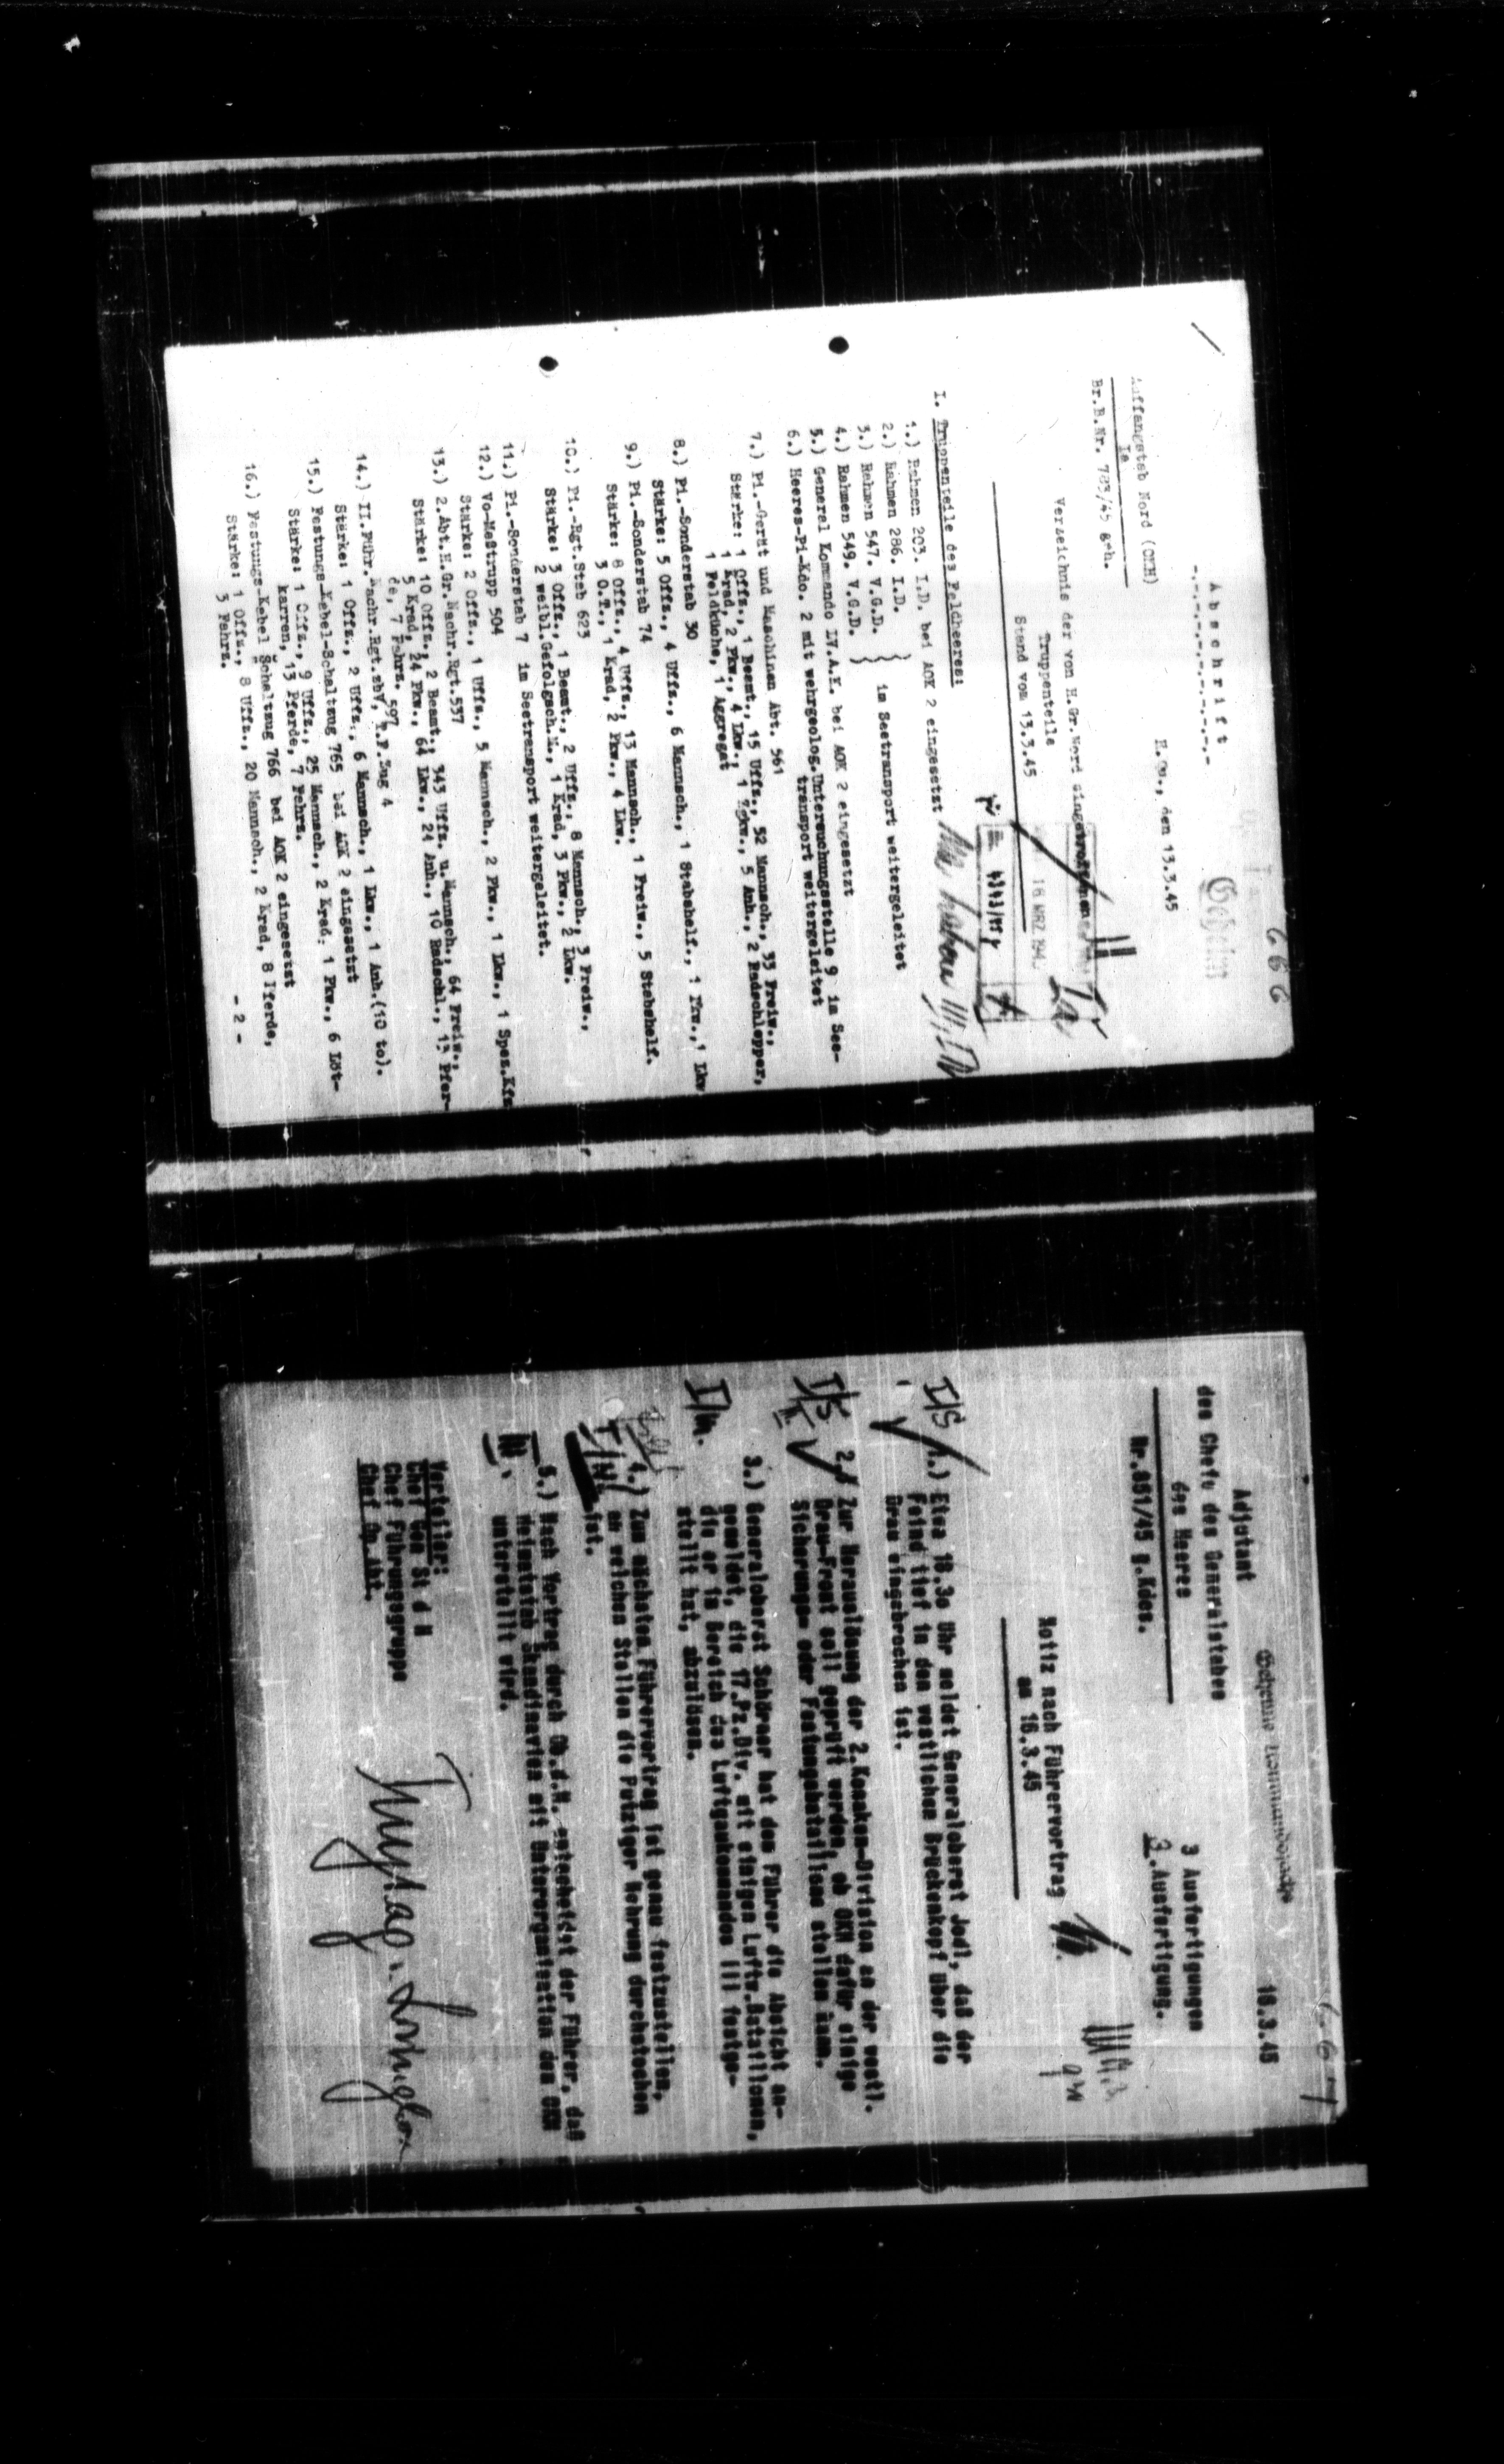 666
Abschrift
-.-.-.-.-.-.-.-.-
Geheim
Auffangstab Nord (OKH)
Ia
H.Qu., den 13.3.45
Br.B.Nr. 783/45 geh.
Verzeichnis der von H.Gr.Nord eingetroffenen
Truppenteile
Stand vom 13.3.45
16 MRZ 194
Ia
I. Truppenteile des Feldheeres:
1.) Rahmen 203. I.D. bei AOK 2 eingesetzt
2.) Rahmen 286. I.D. }
3.) Rahmen 547. V.G.D. { im Seetransport weitergeleitet
4.) Rahmen 549. V.G.D. }
5.) General Kommando LV.A.K. bei AOK 2 eingesetzt
6.) Heeres-Pi-Kdo. 2 mit wehrgeolog.Untersuchungsstelle 9 im See-
transport weitergeleitet
7.) Pi.-Gerät und Maschinen Abt. 561
Stärke: 1 Offz., 1 Beamt., 15 Uffz., 52 Mannsch., 33 Freiw.,
1 Krad, 2 Pkw., 4 Lkw., 1 Zgkw., 5 Anh., 2 Radschlepper,
1 Feldküche, 1 Aggregat
8.) Pi.-Sonderstab 30
Stärke: 5 Offz., 4 Uffz., 6 Mannsch., 1 Stabshelf., 1 Pkw., 1 Lkw
9.) Pi.-Sonderstab 74
Stärke: 8 Offz., 4 Uffz., 13 Mannsch., 1 Freiw., 5 Stabshelf.
3 O.T., 1 Krad, 2 Pkw., 4 Lkw.
10.) Pi.-Rgt.Stab 623
Stärke: 3 Offz., 1 Beamt., 2 Uffz., 8 Mannsch., 3 Freiw.,
2 weibl.Gefolgsch.M., 1 Krad, 3 Pkw., 2 Lkw.
11.) Pi.-Sonderstab 7 im Seetransport weitergeleitet.
12.) Vo-Meßtrupp 504
Stärke: 2 Offz., 1 Uffz., 5 Mannsch., 2 Pkw., 1 Lkw., 1 Spez.Kfz
13.) 2.Abt.H.Gr.Nachr.Rgt.537
Stärke: 10 Offz., 2 Beamt., 343 Uffz. u.Mannsch., 64 Freiw.,
5 Krad, 24 Pkw., 64 Lkw., 24 Anh., 10 Radschl., 13 Pfer-
de, 7 Fahrz.
14.) II.Führ.Nachr.Rgt.zbV. 597 T.F.Zug 4
Stärke: 1 Offz., 2 Uffz., 6 Mannsch., 1 Lkw., 1 Anh.(10 to).
15.) Festungs-Kabel-Schaltzug 765 bei AOK 2 eingesetzt
Stärke: 1 Offz., 9 Uffz., 25 Mannsch., 2 Krad. 1 Pkw., 6 Löt-
karren, 13 Pferde, 7 Fahrz.
16.) Festungs-Kabel Schaltzug 766 bei AOK 2 eingesetzt
Stärke: 1 Offz., 8 Uffz., 20 Mannsch., 2 Krad, 8 Pferde,
3 Fahrz.
- 2 -
667
Geheime Kommandosache
Adjutant
des Chefs des Generalstabes
des Heeres
18.3.45
Nr.851/45 g.Kdos.
3 Ausfertigungen
3.Ausfertigung.
Notiz nach Führervortrag
am 18.3.45
I/S
1.) Etwa 18.30 Uhr meldet Generaloberst Jodl, daß der
Feind tief in den westlichen Brückenkopf über die
Drau eingebrochen ist.
I/S
2.) Zur Herauslösung der 2.Kosaken-Division an der westl.
Drau-Front soll geprüft werden, ob OKH dafür einige
Sicherungs- oder Festungsbataillone stellen kann.
I/M.
3.) Generaloberst Schörner hat dem Führer die Absicht an-
gemeldet, die 17.Pz.Div. mit einigen Luftw.Bataillonen,
die er im Bereich des Luftgaukommandos III festge-
stellt hat, abzulösen.
I/N
4.) Zum nächsten Führervortrag ist genau festzustellen,
an welchen Stellen die Putziger Nehrung durchstochen
ist.
III.
5.) Nach Vortrag durch Ob.d.M. entscheidet der Führer, daß
Heimatstab Skandinavien mit Unterorganisation dem OKM
unterstellt wird.
Verteiler:
Chef Gen St d H
Chef Führungsgruppe
Chef Op.Abt.
Freytag v. Loringhoven